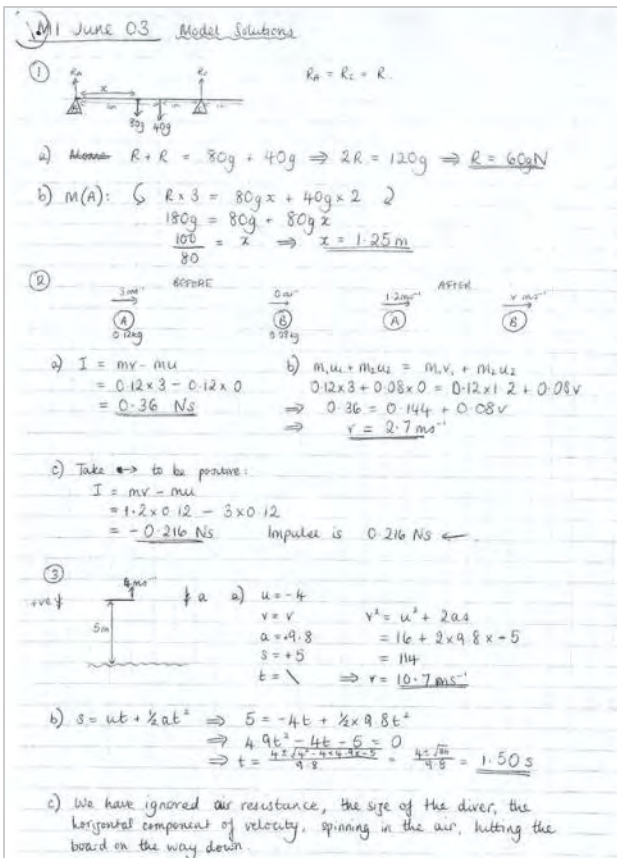 M1 June 03 Model Solutions
①
R_A R_C R_A = R_C = R.
x
80g 40g
a) R + R = 80g + 40g ⇒ 2R = 120g ⇒ R = 60gN
b) M(A): R × 3 = 80gx + 40g × 2
180g = 80g + 80gx
100/80 = x ⇒ x = 1.25m
② BEFORE AFTER
3ms⁻¹ 0ms⁻¹ 1.2ms⁻¹ v ms⁻¹
A B A B
0.12kg 0.08kg
a) I = mv - mu b) m₁u₁ + m₂u₂ = m₁v₁ + m₂u₂
= 0.12×3 - 0.12×0 0.12×3 + 0.08×0 = 0.12×1.2 + 0.08v
= 0.36 Ns ⇒ 0.36 = 0.144 + 0.08v
⇒ v = 2.7ms⁻¹
c) Take → to be positive:
I = mv - mu
= 1.2×0.12 - 3×0.12
= -0.216 Ns Impulse is 0.216 Ns ←
③
4ms⁻¹
+ve↓ ↓a a) u = -4
v = v v² = u² + 2as
5m a = +9.8 = 16 + 2×9.8×-5
s = +5 = 114
t = \ ⇒ v = 10.7ms⁻¹
b) s = ut + ½at² ⇒ 5 = -4t + ½×9.8t²
⇒ 4.9t² - 4t - 5 = 0
⇒ t = (4±√(4²-4×4.9×-5))/9.8 = = 1.50s
c) We have ignored air resistance, the size of the diver, the
horizontal component of velocity, spinning in the air, hitting the
board on the way down.